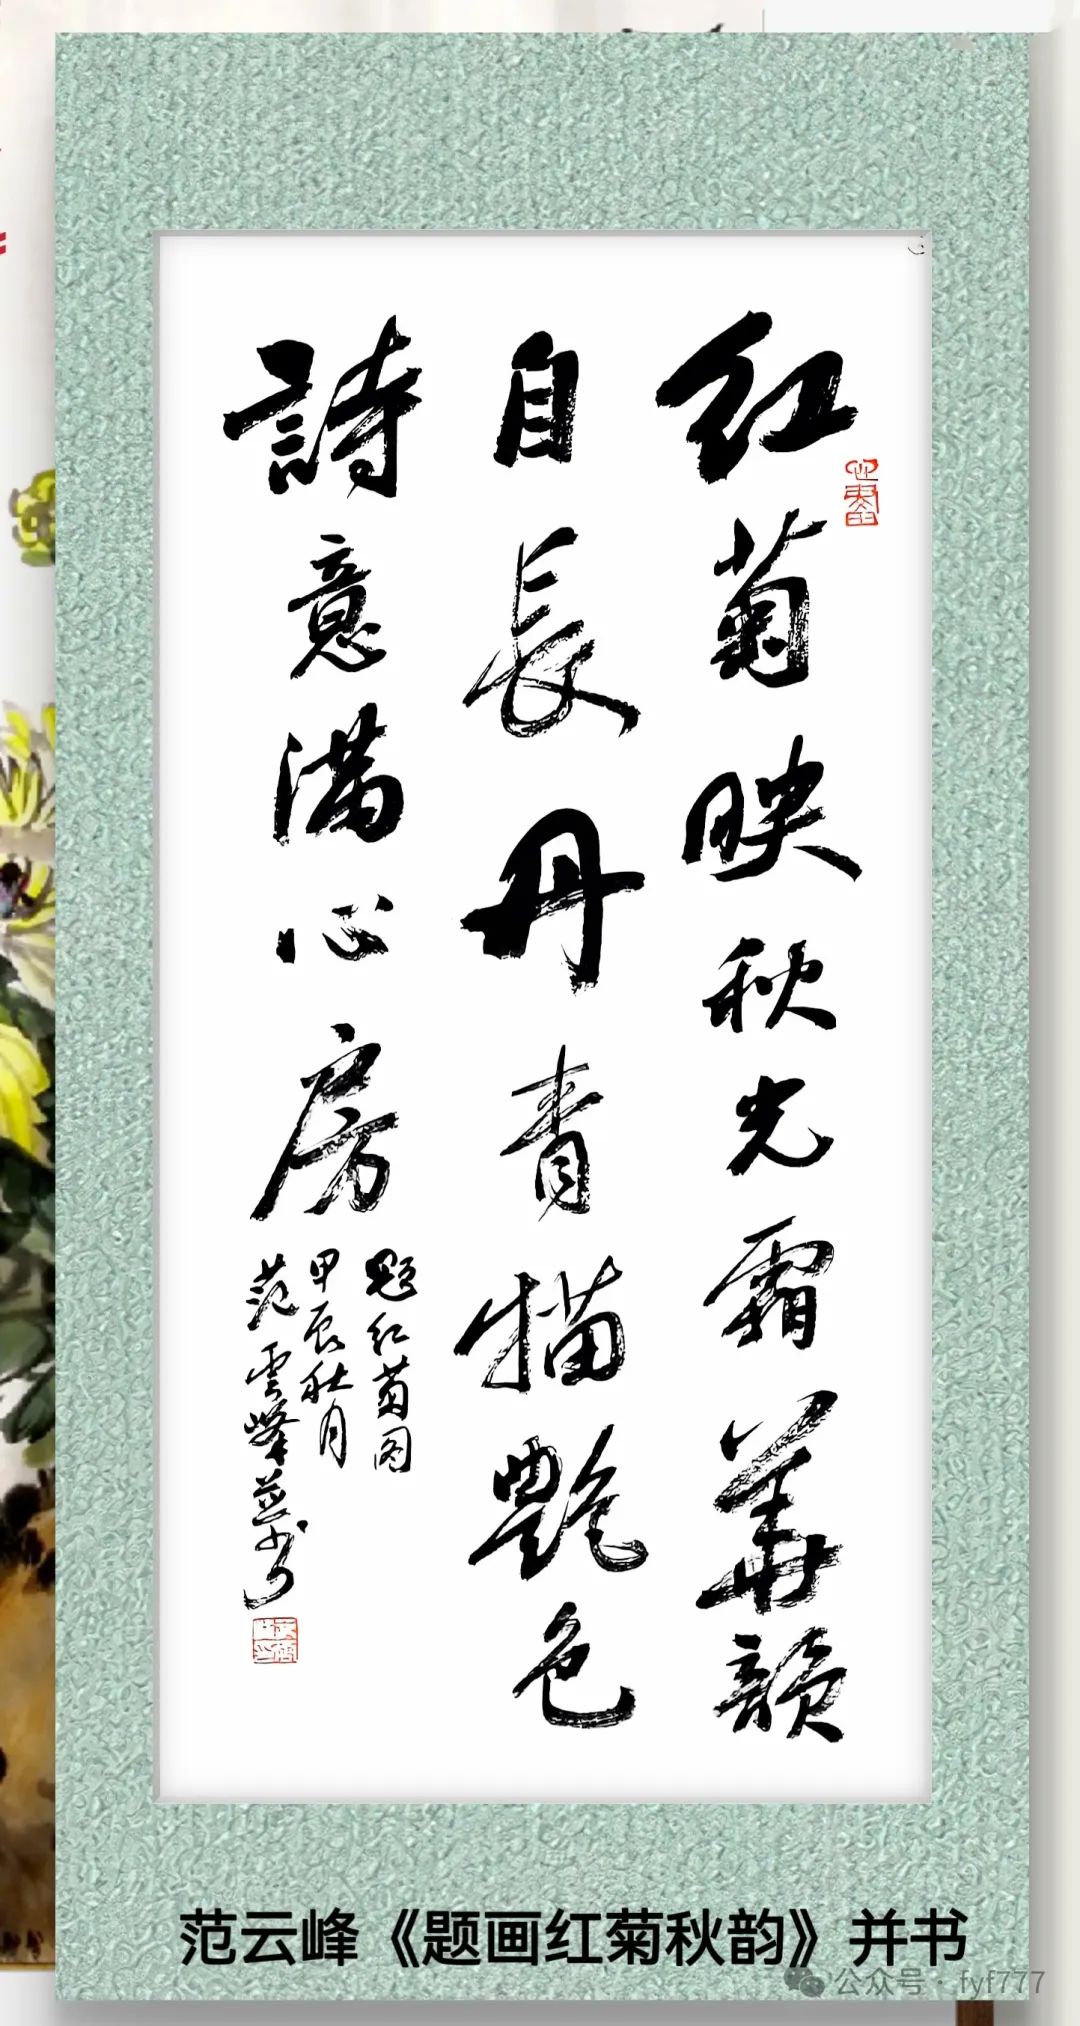 红菊映秋光霜華韻
自長丹青描艷色
詩意满心房
题红菊图
甲辰秋月
范雲峰并书
范云峰《题画红菊秋韵》并书
公众号·fyf777